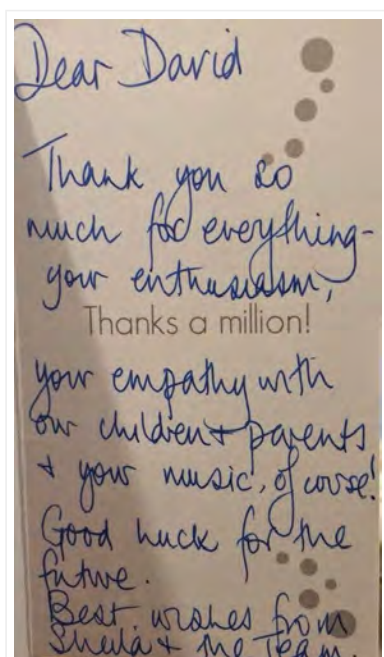 Dear David
Thank you so
much for everything-
your enthusiasm,
Thanks a million!
your empathy with
our children + parents
+ your music, of course!
Good luck for the
future.
Best wishes from
Sheila + the Team.